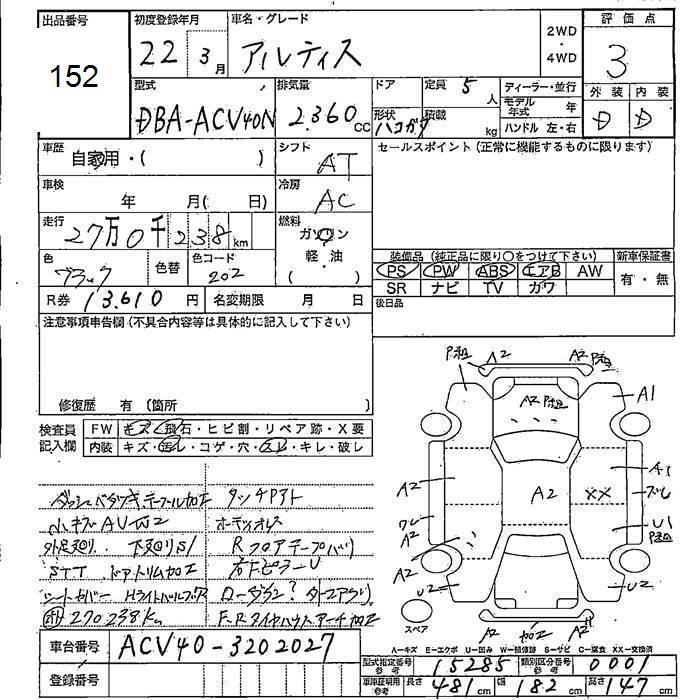 出品番号
152
初度登録年月
22 3月
車名・グレード
アルティス
2WD
・
4WD
評価点
3
型式
DBA-ACV40N
排気量
2.360cc
ドア
定員 5人
形状
ハコガタ
積載 kg
ディーラー・並行
モデル年式 年
ハンドル 左・右
外装
D
内装
D
車歴
自家用・( )
シフト
AT
セールスポイント(正常に機能するものに限ります)
車検
年 月( 日)
冷房
AC
走行
27万0千238km
燃料
ガソリン
軽・油
( )
色
ブラック
色替
色コード
202
装備品(純正品に限り○をつけて下さい)
PS PW ABS エアB AW
SR ナビ TV ガワ
新車保証書
有・無
R券 13.610円
名変期限 月 日
後日品
注意事項申告欄(不具合内容等は具体的に記入して下さい)
修復歴 有 (箇所 )
検査員
記入欄
FW キズ・飛石・ヒビ割・リペア跡・X要
内装 キズ・汚レ・コゲ・穴・スレ・キレ・破レ
P祖 A2 A2 P祖
A2 P祖
A1
A2
A2
A1
XX
ズレ
ワレ
A2
U1
P祖
A2
U2
U2
A2
加工
A2
スペア
ダッシュベタツキ.テーブル加工 タッチアト
小キズAVW2
外足廻リ. 下廻リS1
Rフロアテープバリ
STT ドアトリム加工
右Fピラー U
シートカバー
270238km
F.Rタイヤハウスアーチ加工
A−キズ E−エクボ U−凹み W−補修跡 S−サビ C−腐食 XX−交換済
車台番号 ACV40-3202027
登録番号
型式指定番号
参考
15285
類別区分番号
参考
0001
車車証明用
参考
長さ 481cm 幅 182cm 高さ 147cm